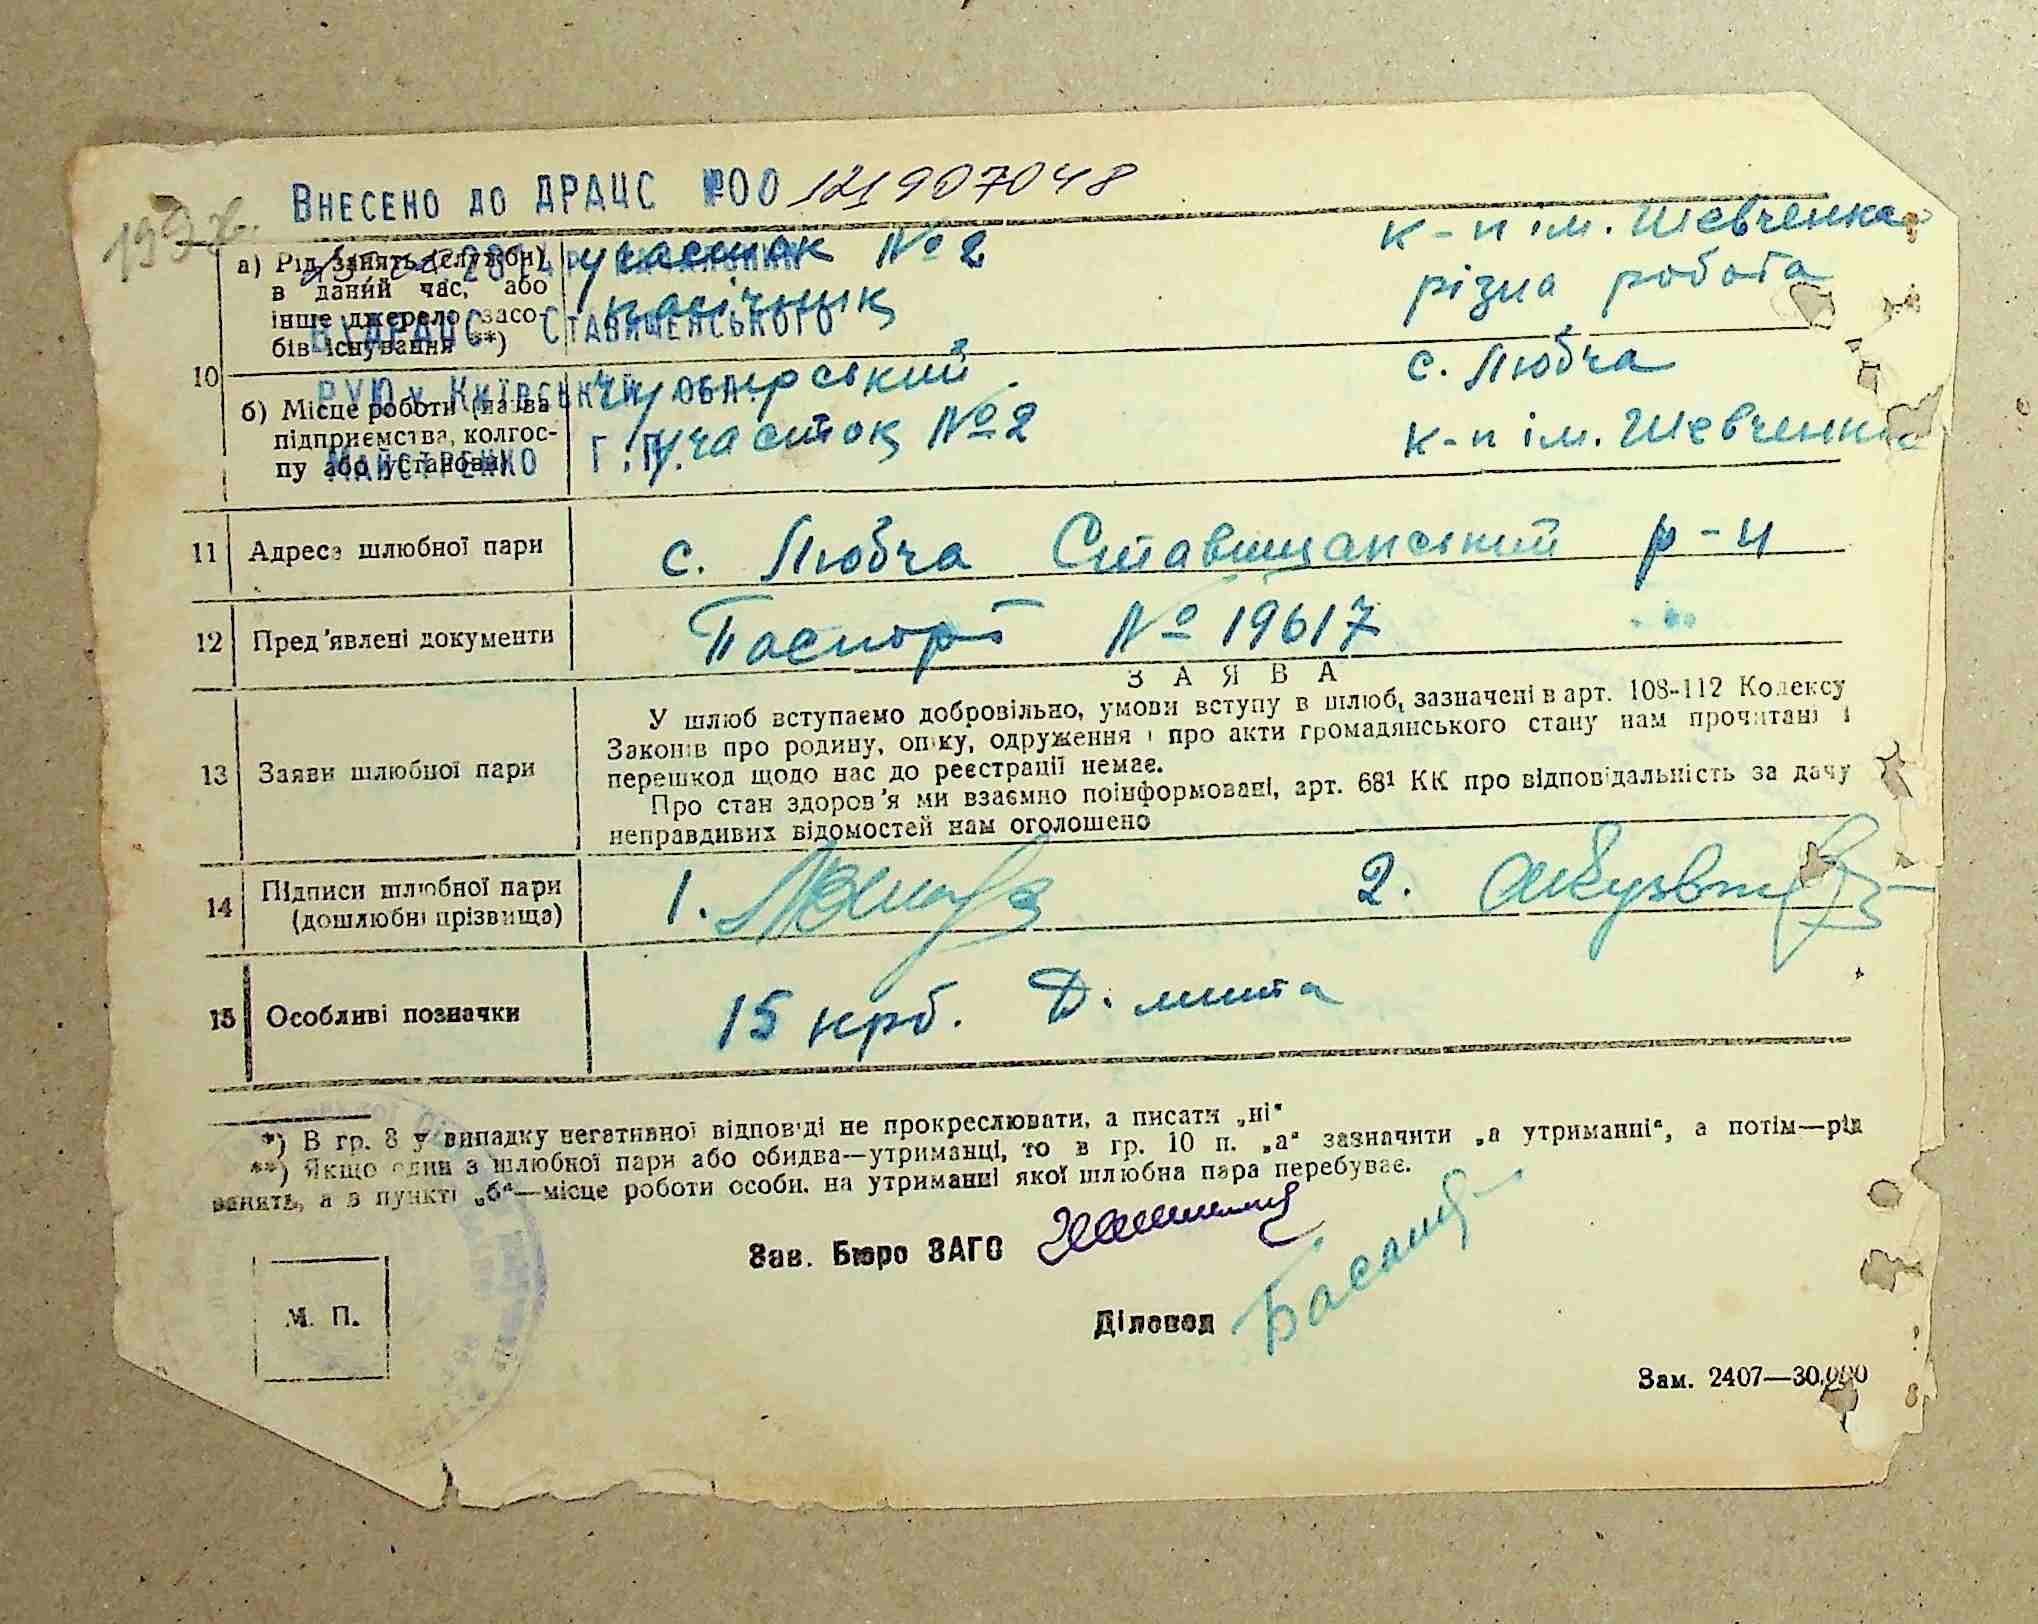 Внесено до ДРАЦС №00 121907048
2014р
ВДРАЦС Ставищенського
РУЮ у Київській обл.
Майстренко Г.П.
10
а) Рід занять (служби) в даний час, або інше джерело засобів існування **)
участок № 2
пасічник
к-п ім. Шевченка
різна робота
б) Місце роботи (назва підприємства, колгоспу або установи)
участок №2
с. Любча
к-п ім. Шевченка
11 Адреса шлюбної пари
с. Любча Ставищанський р-н
12 Пред'явлені документи
Паспорт № 19617
13 Заяви шлюбної пари
ЗАЯВА
У шлюб вступаємо добровільно, умови вступу в шлюб, зазначені в арт. 108-112 Кодексу
Законів про родину, опіку, одруження і про акти громадянського стану нам прочитані і
перешкод щодо нас до реєстрації немає.
Про стан здоров'я ми взаємно поінформовані, арт. 68¹ КК про відповідальність за дачу
неправдивих відомостей нам оголошено
14 Підписи шлюбної пари
(дошлюбні прізвища)
1.
2.
15 Особливі позначки
15 крб. Д. мита
*) В гр. 8 у випадку негативної відповіді не прокреслювати, а писати „ні“
**) Якщо один з шлюбної пари або обидва—утриманці, то в гр. 10 п. „а“ зазначити „а утриманні“, а потім—рід
занять, а в пункті „б“—місце роботи особи, на утриманні якої шлюбна пара перебуває.
Зав. Бюро ЗАГС
Діловод
М. П.
Зам. 2407—30.000